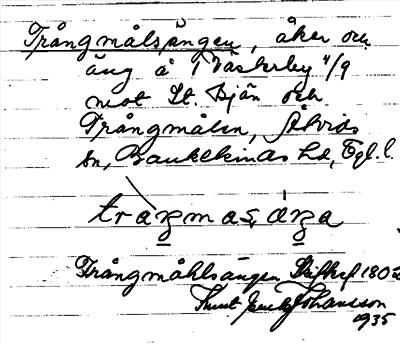 Trångmålsängen, åker och
äng å Väskelby 4/9
mot St. Bjän och
Trångmålen, Åtvids
sn, Bankekinds hd, Ögl. l.
traŋmas,äŋa
Trångmåhlsängen Skifteshl 1802
Knut Johansson
1935